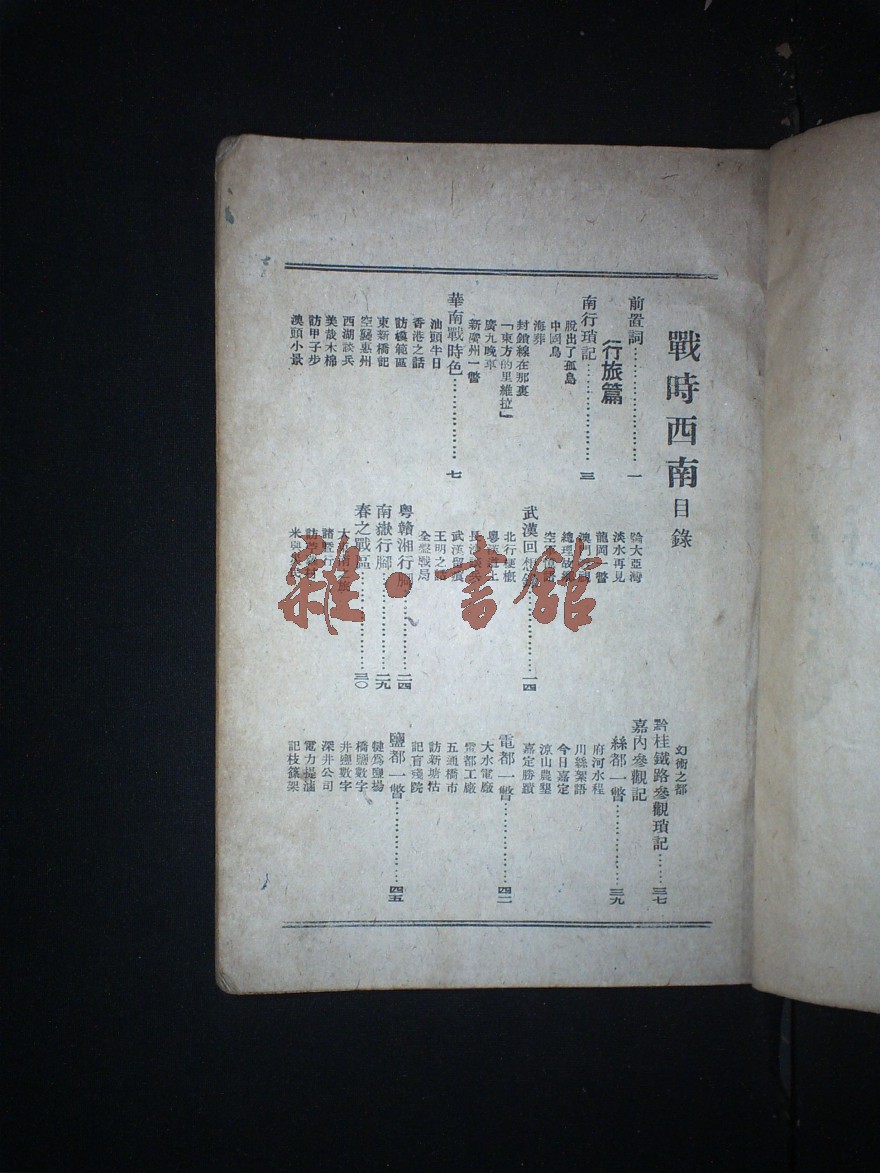 戰時西南目錄
前置詞……一
行旅篇
南行瑣記……三
脫出了孤島
中國島
海葬
封鎖線在那裏
「東方的里維拉」
廣九晚車
新廣州一瞥
華南戰時色……七
汕頭半日
香港之話
訪模範區
東新橋記
空襲惠州
西湖談兵
美哉木棉
訪甲子步
澳頭小景
論大亞灣
淡水再見
龍岡一瞥
澳門
總理故
空
武漢回想錄……一四
北行
粵
長沙
武漢
王明之話
全盤戰局
粵贛湘行腳……二四
南嶽行腳……二九
春之戰區……三〇
大
諸暨行
訪
米與
幻術之都
黔桂鐵路參觀瑣記……三七
嘉內參觀記
絲都一瞥……三九
府河水程
川絲絮語
今日嘉定
涼山農墾
嘉定勝蹟
電都一瞥……四二
大水電廠
電都工廠
五通橋市
訪新塘沽
記盲殘院
鹽都一瞥……四五
犍爲鹽場
橋鹽數字
井鹽數字
深井公司
電力提滷
記枝篠架
雜·書館